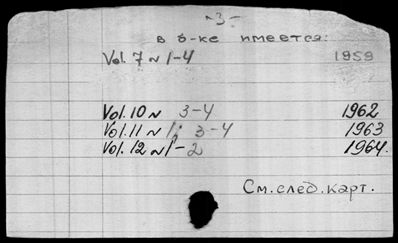 -3-
в б-ке имеется:
Vol. 7 N 1-4 1959
Vol. 10 N 3-4 1962
Vol. 11 N 1; 3-4 1963
Vol. 12 N 1-2 1964.
См. след. карт.